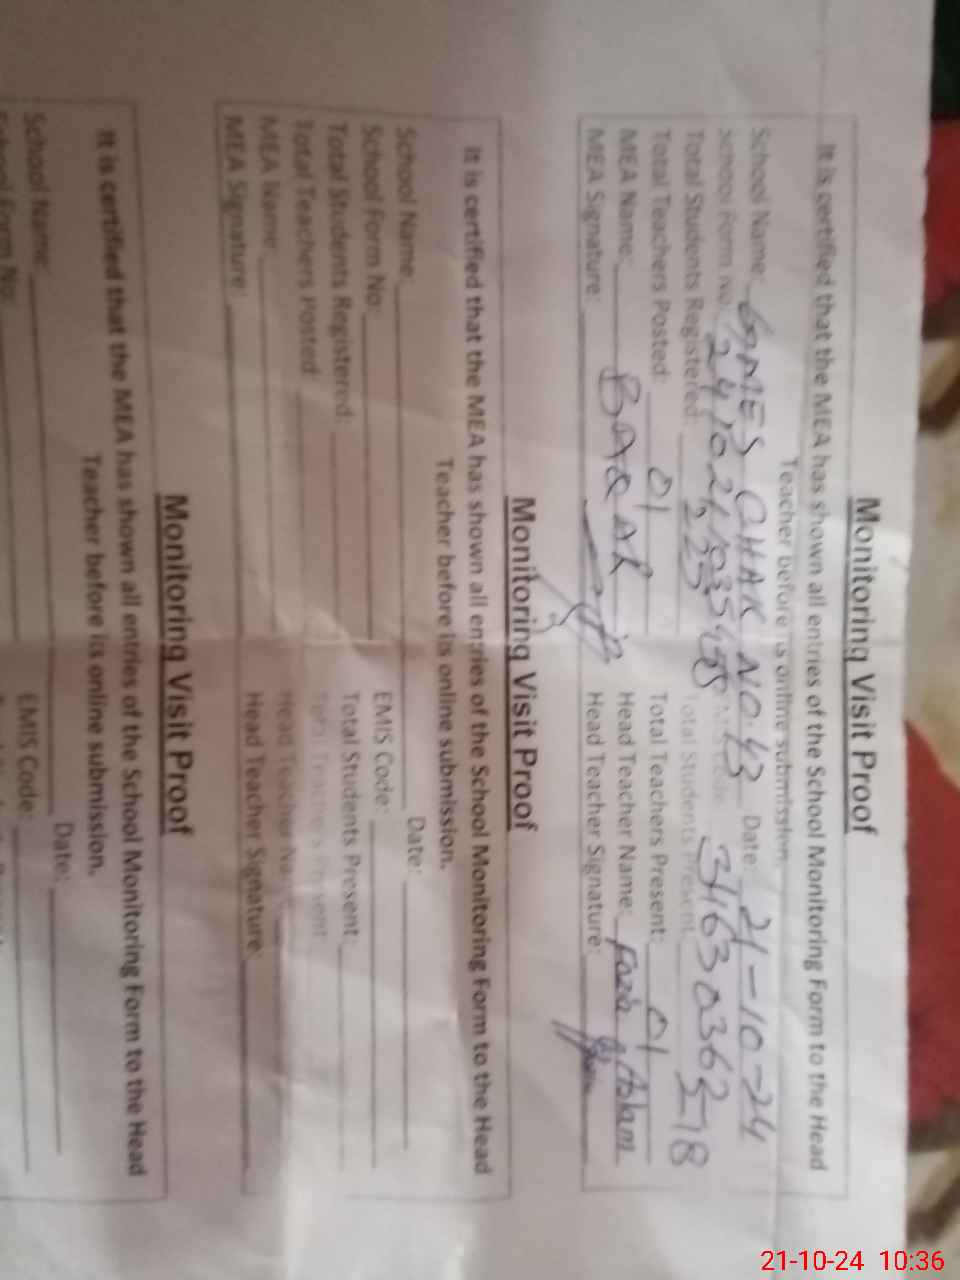 Monitoring Visit Proof
It is certified that the MEA has shown all entries of the School Monitoring Form to the Head
Teacher before its online submission.
School Name: GMES CHAK NO.43 Date: 21-10-24
School Form No:
Total Students Registered: Total Students Present:
Total Teachers Posted: 01 Total Teachers Present: 01
MEA Name: Head Teacher Name: Fozia Aslam
MEA Signature: Head Teacher Signature:
Monitoring Visit Proof
It is certified that the MEA has shown all entries of the School Monitoring Form to the Head
Teacher before its online submission.
School Name: Date:
School Form No: EMIS Code:
Total Students Registered: Total Students Present:
Total Teachers Posted: Total Teachers Present:
MEA Name: Head Teacher Name:
MEA Signature: Head Teacher Signature:
Monitoring Visit Proof
It is certified that the MEA has shown all entries of the School Monitoring Form to the Head
Teacher before its online submission.
School Name: Date:
School Form No: EMIS Code:
21-10-24 10:36